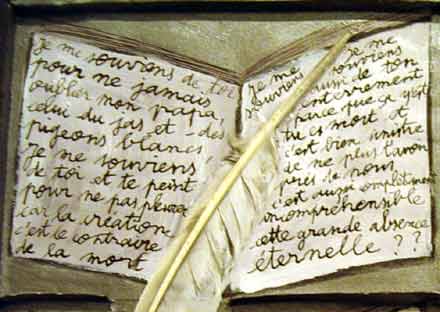 Je me souviens de toi
pour ne jamais
oublier mon papa,
celui du jas et des
pigeons blancs
Je me souviens
de toi et te peint
pour ne pas pleurer
car la création
c'est le contraire
de la mort
Je me souviens
Je me souviens
aussi de ton
enterrement
parce que ça y'est
tu es mort et
c'est bien sinistre
de ne plus t'avoir
près de nous
c'est aussi complètement
incompréhensible
cette grande absence
éternelle ? ?